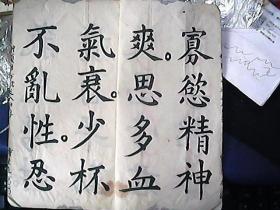 寡慾精神
爽。思多血
氣衰。少杯
不亂性。忍